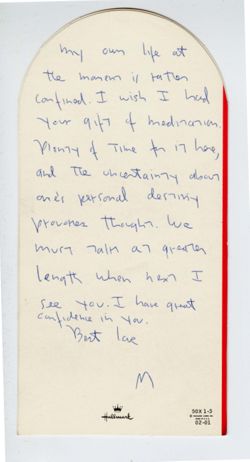 My own life at
the moment is rather
confined. I wish I had
your gift of meditation.
Plenty of time for it here,
and the uncertainty about
one's personal destiny
provokes thought. We
must talk at greater
length when next I
see you. I have great
confidence in you.
Best love
M
Hallmark
50X 1-5
02-01